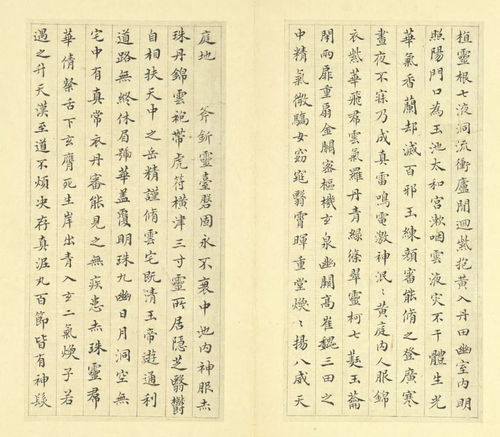 植靈根七液洞流衝廬間迴紫抱黃入丹田幽室內明
照陽門口為玉池太和宮漱咽雲液灾不干體生光
華氣香蘭却滅百邪玉練顏審能脩之登廣寒
晝夜不寐乃成真雷鳴電激神泯〻黃庭內人服錦
衣紫華飛裙雲氣羅丹青綠條翠靈柯七蕤玉籥
閉兩扉重扇金關密樞機玄泉幽闕高崔巍三田之
中精氣微驕女窈窕翳霄暉重堂煥〻揚八威天
庭地 斧釿靈臺磐固永不衰中池內神服赤
珠丹錦雲袍帶虎符橫津三寸靈所居隱芝翳鬱
自相扶天中之岳精謹脩雲宅既清玉帝遊通利
道路無終休眉號華蓋覆明珠九幽日月洞空無
宅中有真常衣丹審能見之無疾患赤珠靈裙
華倩粲舌下玄膺死生岸出青入玄二氣煥子若
遇之升天漢至道不煩決存真泥丸百節皆有神髮